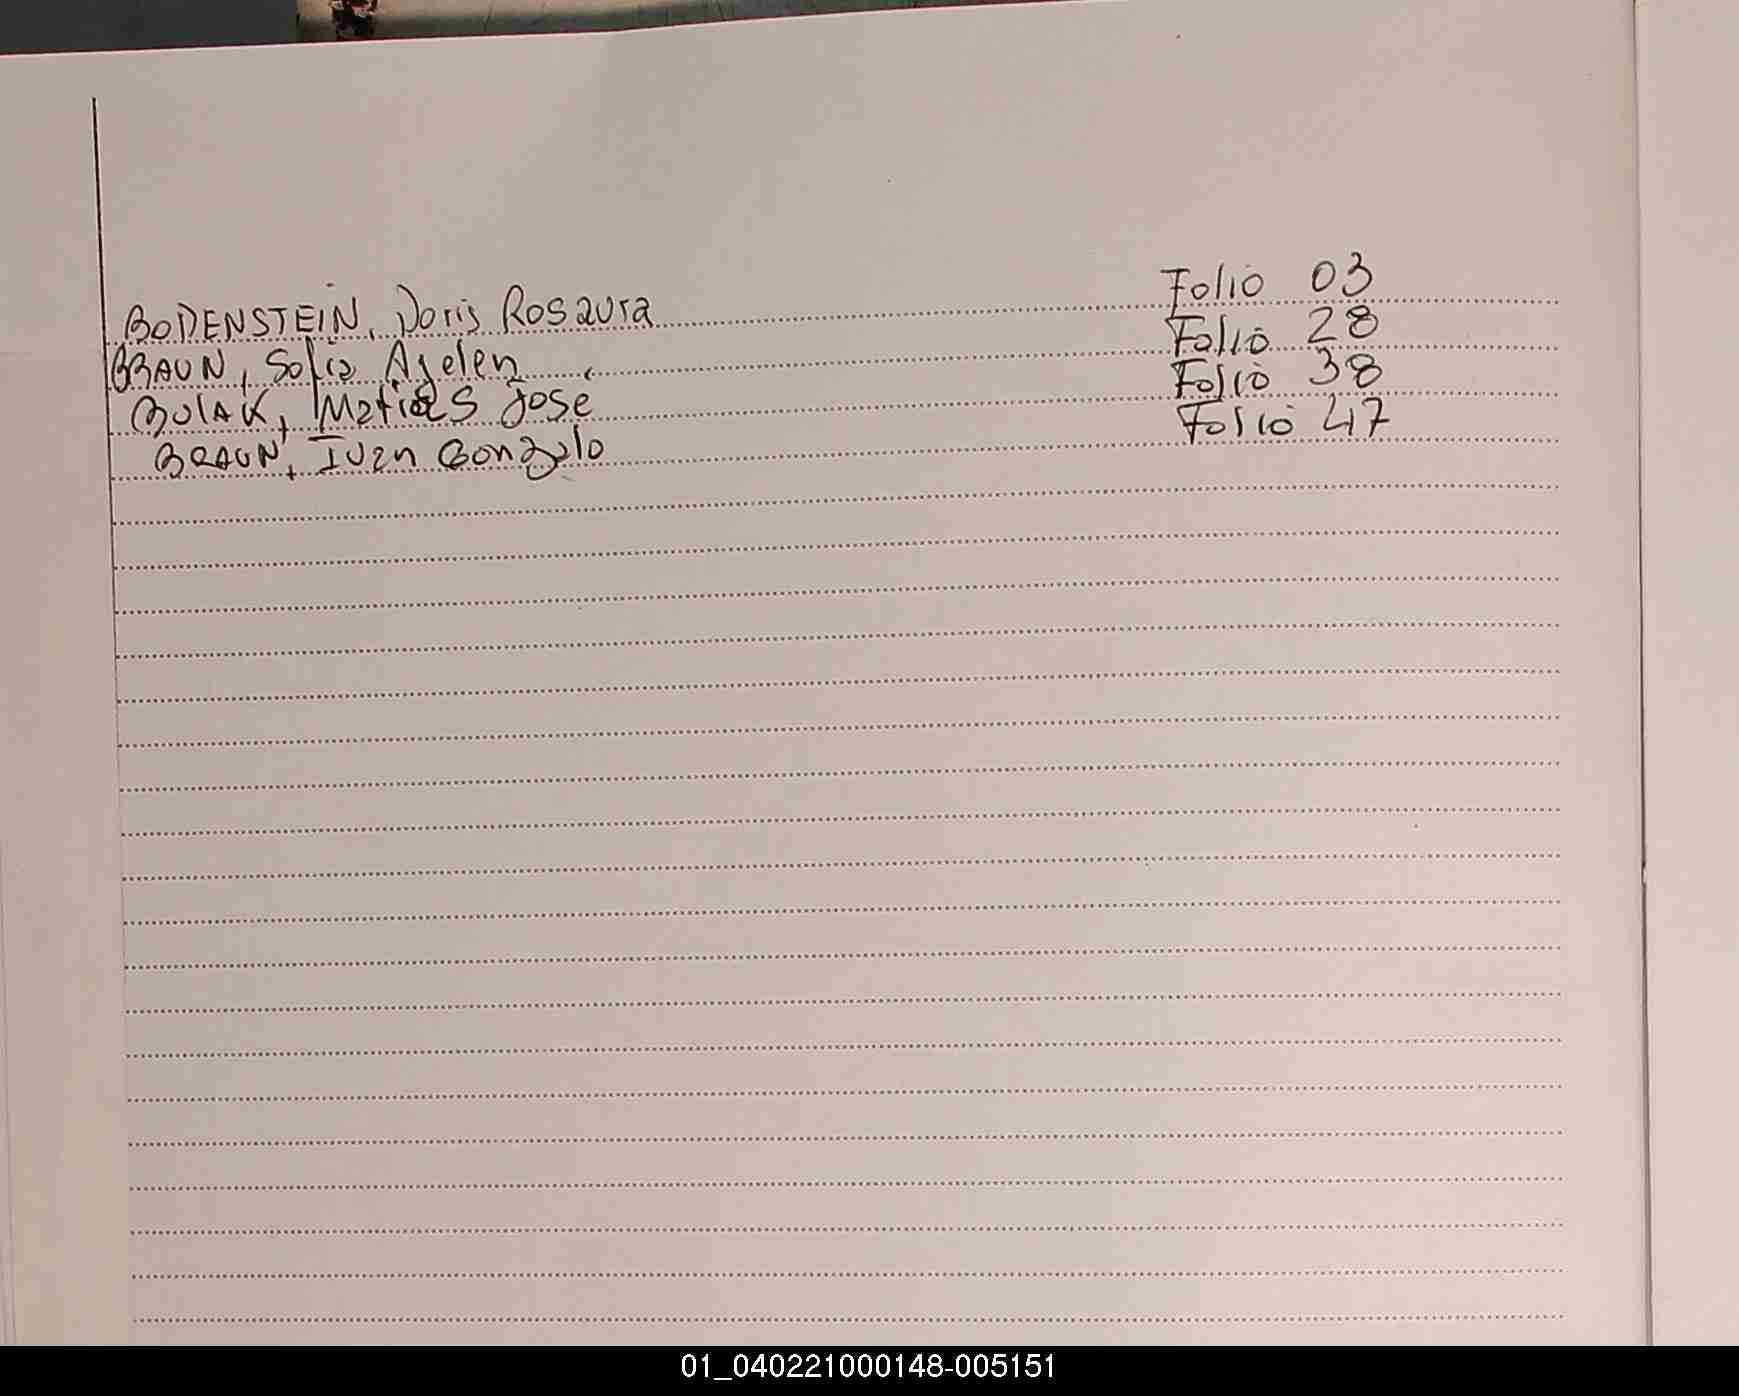 BODENSTEIN, Doris Rosaura Folio 03
BRAUN, Sofia Ayelen Folio 28
BULAK, Matias José Folio 38
BRAUN, Ivan Gonzalo Folio 47
01_040221000148-005151